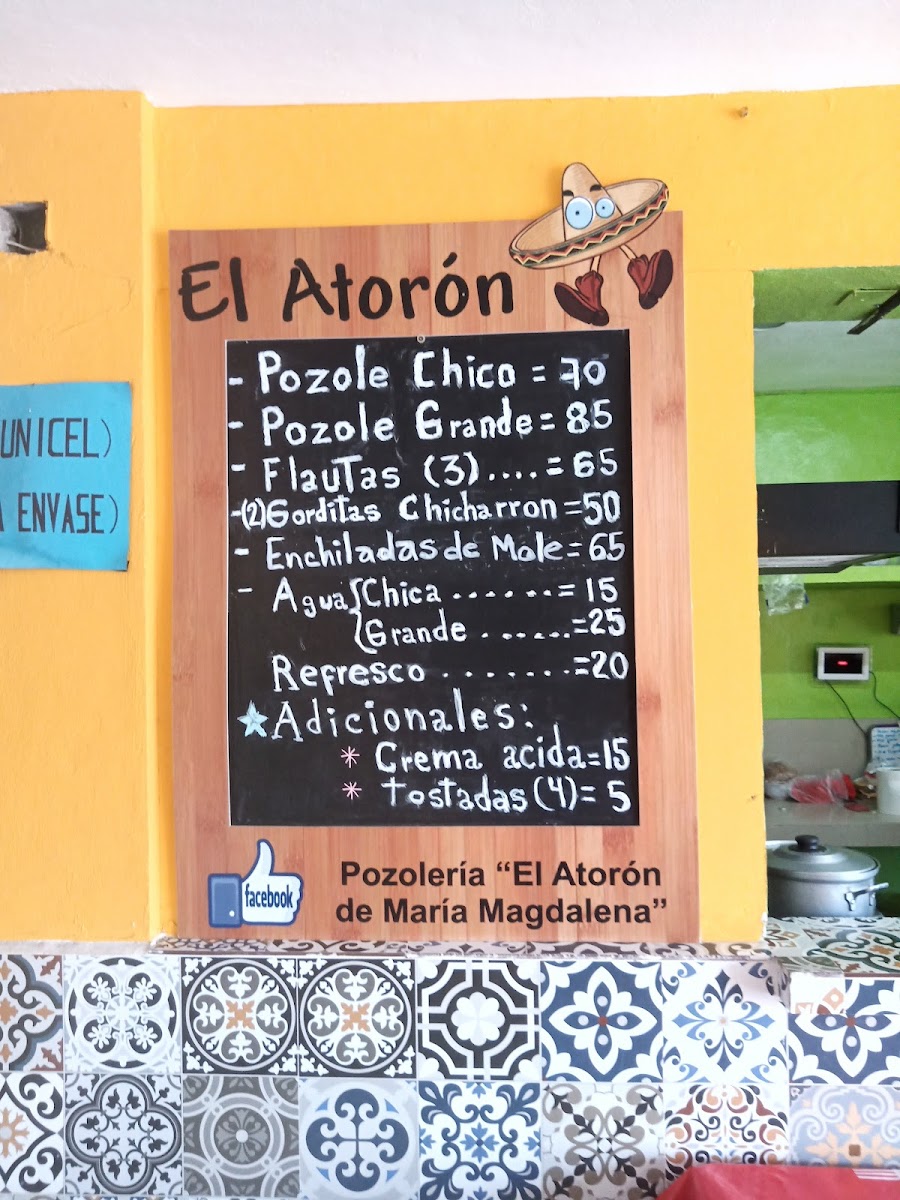 El Atorón
- Pozole Chico = 70
- Pozole Grande = 85
- Flautas (3).... = 65
-(2) Gorditas Chicharron = 50
- Enchiladas de Mole = 65
- Agua { Chica ...... = 15
{ Grande ...... = 25
Refresco ....... = 20
Adicionales:
* Crema acida = 15
* tostadas (4) = 5
facebook
Pozolería “El Atorón
de María Magdalena”
UNICEL)
ENVASE)